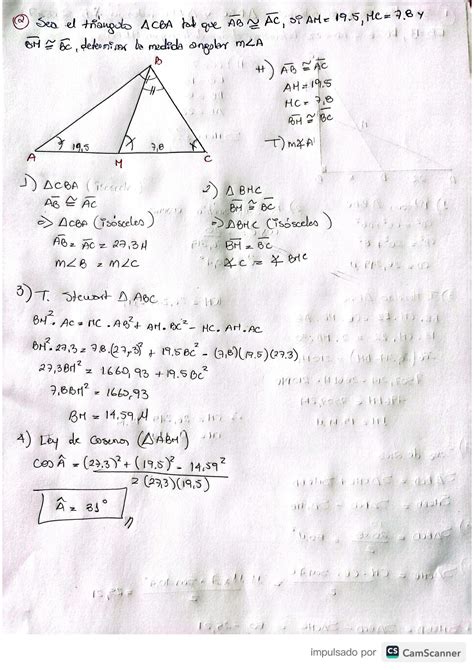 ② Sea el triángulo ΔCBA tal que AB ≅ AC, si AM = 19.5, MC = 7,8 y
BM ≅ BC, determinar la medida angular m∠A
B
A 19,5 M 7,8 C
H) AB ≅ AC
AM = 19,5
MC = 7,8
BM ≅ BC
T) m∡A
1) ΔCBA (isósceles)
AB ≅ AC
=> ΔCBA (isósceles)
AB = AC = 27,3 M
m∠B = m∠C
2) Δ BMC
BM ≅ BC
=> ΔBMC (isósceles)
BM = BC
∡C = ∡ BMC
3) T. Stewart Δ ABC
BM² · AC = MC · AB² + AM · BC² - MC · AM · AC
BM² · 27,3 = 7.8 (27,3)² + 19,5 BC² - (7,8)(19,5)(27,3)
27,3BM² = 1660,93 + 19.5 BC²
7,8BM² = 1660,93
BM = 14,59 M
4) Ley de cosenos (ΔABM)
cos Â = (27,3)² + (19,5)² - 14,59²
2 (27,3)(19,5)
Â = 31°
impulsado por CS CamScanner